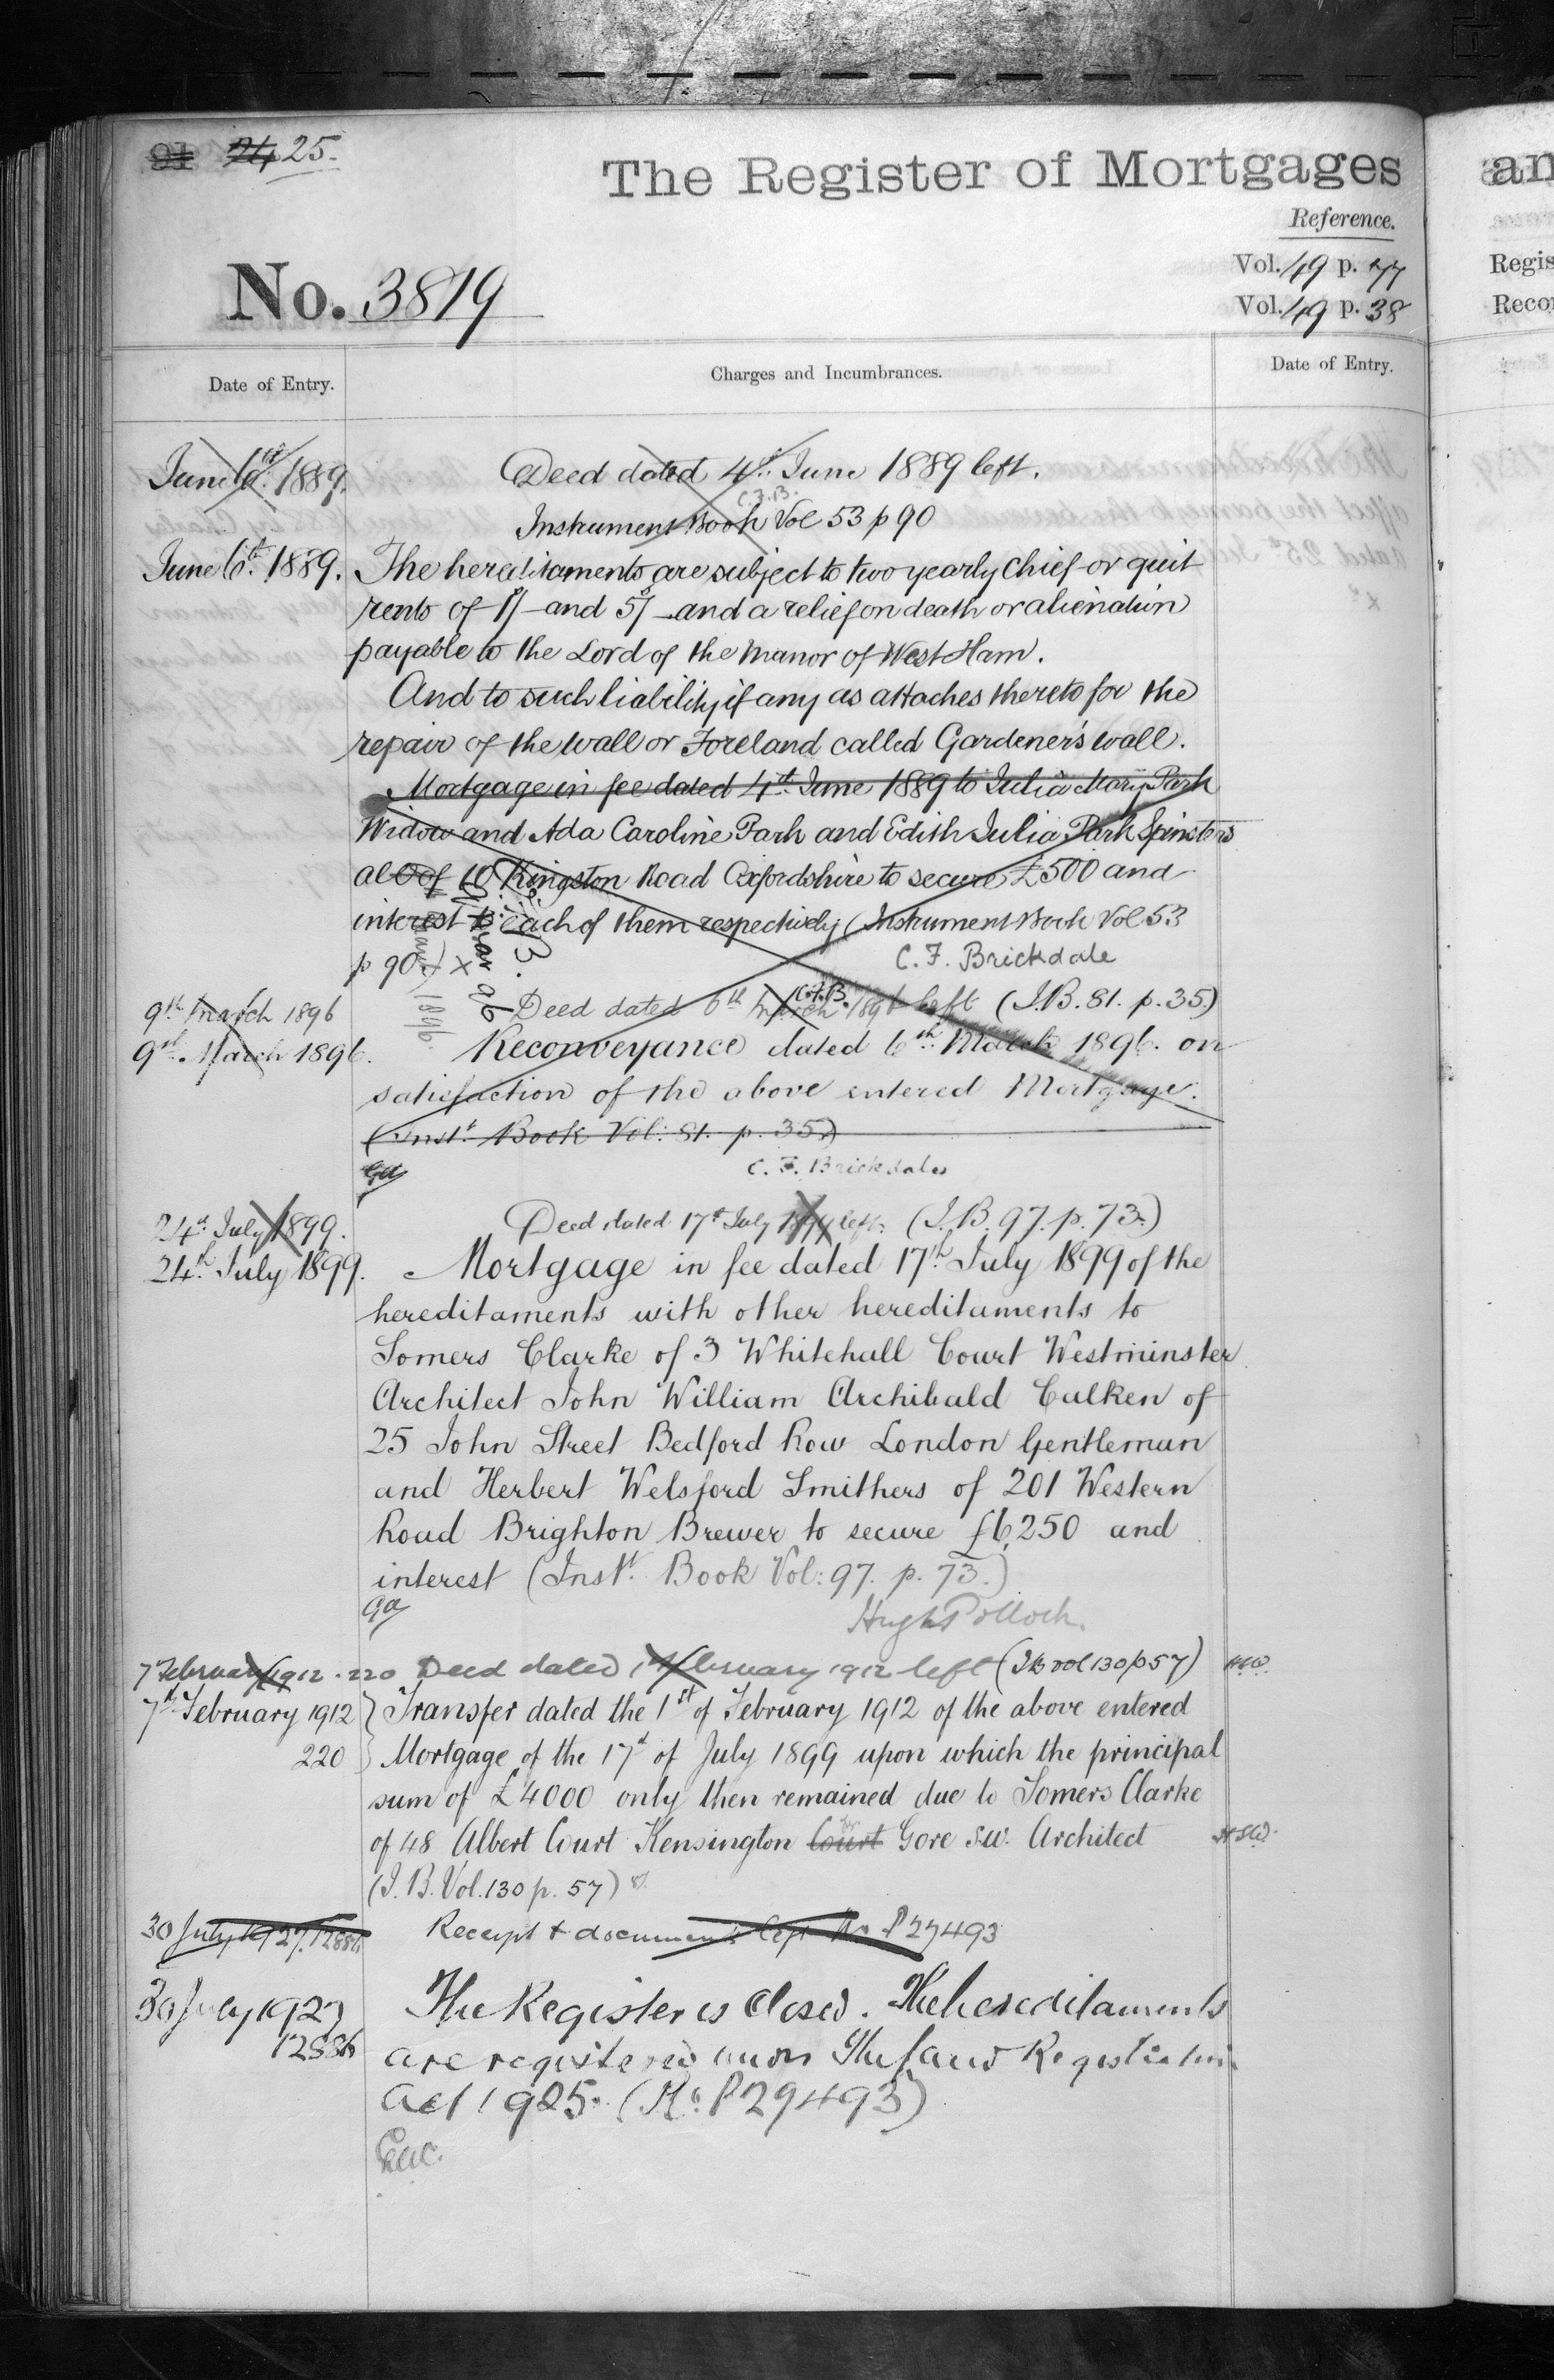 91 24 25.
The Register of Mortgages
Reference.
Vol. 49 p. 77
Vol. 49 p. 38
No. 3819
Date of Entry.
Charges and Incumbrances.
Date of Entry.
June 6th 1889.
Deed dated 4th June 1889 left.
C.F.B.
Instrument Book Vol 53 p 90
June 6th 1889.
The hereditaments are subject to two yearly Chief or quit
rents of 1/- and 5/- and a relief on death or alienation
payable to the Lord of the Manor of West Ham.
And to such liability if any as attaches thereto for the
repair of the wall or Foreland called Gardener's wall.
Mortgage in fee dated 4th June 1889 to Julia Mary Park
Widow and Ada Caroline Park and Edith Julia Park Spinsters
all of 10 Kingston Road Oxfordshire to secure £500 and
interest to each of them respectively (Instrument Book Vol 53
p 90)
C. F. Brickdale
9th March 1896
Deed dated 6th March 1896 left (I.B. 81. p. 35)
C.F.B.
9th March 1896.
Reconveyance dated 6th March 1896. on
satisfaction of the above entered Mortgage.
(Inst. Book Vol: 81. p. 35)
C. F. Brickdale
24th July 1899.
Deed dated 17th July 1899 left. (I.B. 97. p. 73.)
24th July 1899.
Mortgage in fee dated 17th July 1899 of the
hereditaments with other hereditaments to
Somers Clarke of 3 Whitehall Court Westminster
Architect John William Archibald Culken of
25 John Street Bedford Row London Gentleman
and Herbert Welsford Smithers of 201 Western
Road Brighton Brewer to secure £6,250 and
interest (Inst. Book Vol: 97. p. 73.)
Hugh Pollock.
7 February 1912 . 220
Deed dated 1st February 1912 left (IB vol 130 p 57)
H.S.W.
7th February 1912
220
Transfer dated the 1st of February 1912 of the above entered
Mortgage of the 17th of July 1899 upon which the principal
sum of £4000 only then remained due to Somers Clarke
of 48 Albert Court Kensington Court Gore S.W. Architect
H.S.W.
(I.B. Vol. 130 p. 57)
30 July 1927. 12886
Receipt & documents left No P 27493
30 July 1927
12886
The Register is Closed. The hereditaments
are registered under The Land Registration
Act 1925. (No. P 29493)